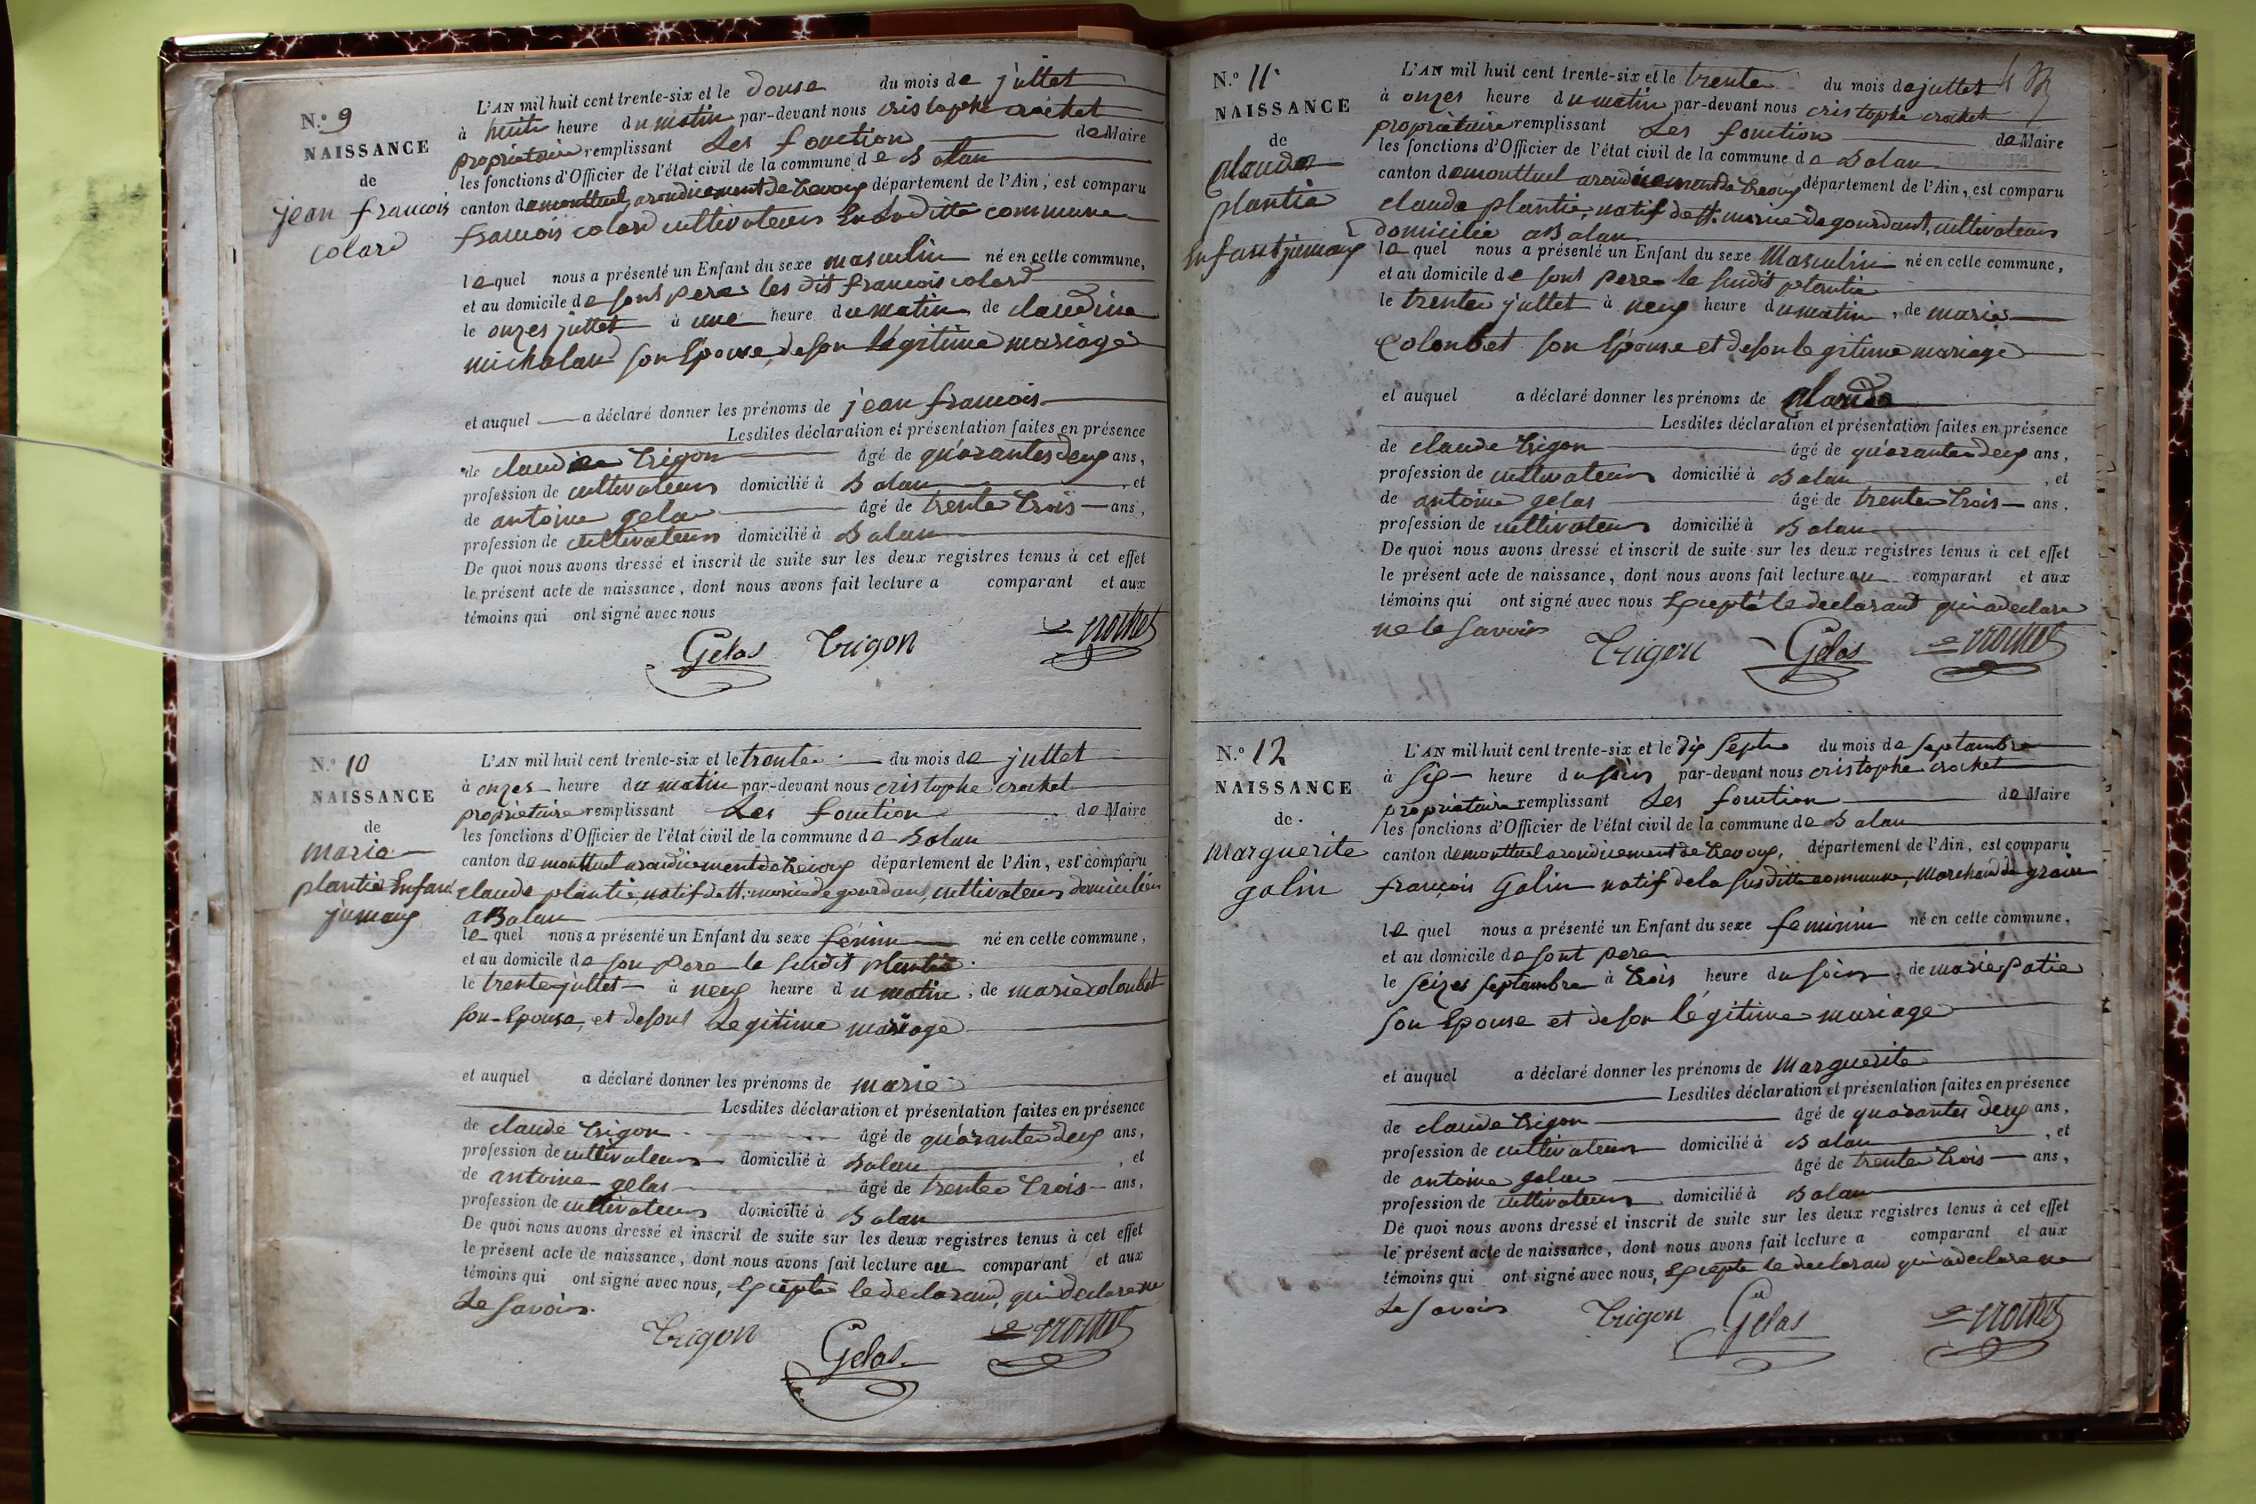 N.º 9
NAISSANCE
de
jean francois
colard
L'AN mil huit cent trente-six et le douse du mois de juttet
à huite heure du matin par-devant nous cristophe crochet
propriétaire remplissant Les fonction de Maire
les fonctions d'Officier de l'état civil de la commune de Balan
canton de monttuel arondicement de trevoux département de l'Ain, est comparu
francois colard cultivateur en laditte commune
lequel nous a présenté un Enfant du sexe masculin né en cette commune,
et au domicile de sont pere les dit francois colard
le onzes juttet à une heure du matin de claudine
michalan son Epouse, de son légitime mariage
et auquel a déclaré donner les prénoms de jean francois
Lesdites déclaration et présentation faites en présence
de claude trigon âgé de quarantes deux ans,
profession de cultivateur domicilié à Balan, et
de antoine gelas âgé de trente trois ans,
profession de cultivateur domicilié à Balan
De quoi nous avons dressé et inscrit de suite sur les deux registres tenus à cet effet
le présent acte de naissance, dont nous avons fait lecture a comparant et aux
témoins qui ont signé avec nous
Gelas trigon crochet
N.º 10
NAISSANCE
de
marie
plantie Enfant
jumaux
L'AN mil huit cent trente-six et le trente du mois de juttet
à onzes heure du matin par-devant nous cristophe crochet
propriétaire remplissant Les fonction de Maire
les fonctions d'Officier de l'état civil de la commune de Balan
canton de monttuel arondicement de trevoux département de l'Ain, est comparu
claude plantie, natif de St. maurice de gourdans, cultivateur domicilier
a Balan
lequel nous a présenté un Enfant du sexe féminin né en cette commune,
et au domicile de son pere le susdit plantie
le trente juttet à neuf heure du matin, de marie colonbet
son Epouse, et de sont Legitime mariage
et auquel a déclaré donner les prénoms de marie
Lesdites déclaration et présentation faites en présence
de claude trigon âgé de quarante deux ans,
profession de cultivateur domicilié à Balan, et
de antoine gelas âgé de trente trois ans,
profession de cultivateur domicilié à Balan
De quoi nous avons dressé et inscrit de suite sur les deux registres tenus à cet effet
le présent acte de naissance, dont nous avons fait lecture au comparant et aux
témoins qui ont signé avec nous, Excepté le declarand, qui declare ne
Le savoir.
trigon Gelas crochet
N.º 11
NAISSANCE
de
claude
plantie
Enfant jumaux
L'AN mil huit cent trente-six et le trente du mois de juttet
à onzes heure du matin par-devant nous cristophe crochet
propriétaire remplissant Les fonction de Maire
les fonctions d'Officier de l'état civil de la commune de Balan
canton de monttuel arondicement de trevoux département de l'Ain, est comparu
claude plantie, natif de St. maurice de gourdans, cultivateur
domicilié a Balan
lequel nous a présenté un Enfant du sexe Masculin né en cette commune,
et au domicile de sont pere le susdit plantie
le trente juttet à neuf heure du matin, de marie
Colonbet son Epouse et de son legitime mariage
et auquel a déclaré donner les prénoms de claude
Lesdites déclaration et présentation faites en présence
de claude trigon âgé de quarante deux ans,
profession de cultivateur domicilié à Balan, et
de antoine gelas âgé de trente trois ans,
profession de cultivateur domicilié à Balan
De quoi nous avons dressé et inscrit de suite sur les deux registres tenus à cet effet
le présent acte de naissance, dont nous avons fait lecture au comparant et aux
témoins qui ont signé avec nous Excepté le declarand qui a declare
ne le savoir
trigon Gelas crochet
N.º 12
NAISSANCE
de
Marguerite
galin
L'AN mil huit cent trente-six et le dix septe du mois de septambre
à six heure du soir par-devant nous cristophe crochet
propriétaire remplissant Les fonction de Maire
les fonctions d'Officier de l'état civil de la commune de Balan
canton de monttuel arondicement de trevoux, département de l'Ain, est comparu
françois Galin natif de la susditte commune, Marchand de grain
lequel nous a présenté un Enfant du sexe feminin né en cette commune,
et au domicile de sont pere
le seizes septambre à trois heure du soir, de marie patie
son Epouse et de son légitime mariage
et auquel a déclaré donner les prénoms de Marguerite
Lesdites déclaration et présentation faites en présence
de claude trigon âgé de quarantes deux ans,
profession de cultivateur domicilié à Balan, et
de antoine gelas âgé de trente trois ans,
profession de cultivateur domicilié à Balan
De quoi nous avons dressé et inscrit de suite sur les deux registres tenus à cet effet
le présent acte de naissance, dont nous avons fait lecture a comparant et aux
témoins qui ont signé avec nous, Excepte le declarand qui a declare ne
Le savoir
trigon Gelas crochet